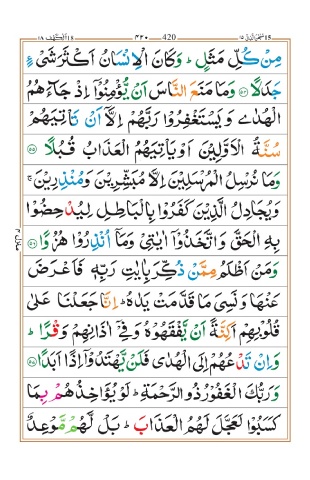 سبحن الذی ١٥ ٤٢٠ 420 الکھف ١٨
مِنْ كُلِّ مَثَلٍ ؕ وَكَانَ الْاِنْسَانُ اَكْثَرَ شَیْءٍ
جَدَلًا ﴿۵۴﴾ وَمَا مَنَعَ النَّاسَ اَنْ یُّؤْمِنُوْۤا اِذْ جَآءَهُمُ
الْهُدٰی وَ یَسْتَغْفِرُوْا رَبَّهُمْ اِلَّاۤ اَنْ تَاْتِیَهُمْ
سُنَّةُ الْاَوَّلِیْنَ اَوْ یَاْتِیَهُمُ الْعَذَابُ قُبُلًا ﴿۵۵﴾
وَمَا نُرْسِلُ الْمُرْسَلِیْنَ اِلَّا مُبَشِّرِیْنَ وَمُنْذِرِیْنَ ۚ
وَ یُجَادِلُ الَّذِیْنَ كَفَرُوْا بِالْبَاطِلِ لِیُدْحِضُوْا
بِهِ الْحَقَّ وَ اتَّخَذُوْۤا اٰیٰتِیْ وَمَاۤ اُنْذِرُوْا هُزُوًا ﴿۵۶﴾
وَمَنْ اَظْلَمُ مِمَّنْ ذُكِّرَ بِاٰیٰتِ رَبِّهٖ فَاَعْرَضَ
عَنْهَا وَ نَسِیَ مَا قَدَّمَتْ یَدٰهُ ؕ اِنَّا جَعَلْنَا عَلٰی
قُلُوْبِهِمْ اَكِنَّةً اَنْ یَّفْقَهُوْهُ وَ فِیْۤ اٰذَانِهِمْ وَقْرًا ؕ
وَ اِنْ تَدْعُهُمْ اِلَی الْهُدٰی فَلَنْ یَّهْتَدُوْۤا اِذًا اَبَدًا ﴿۵۷﴾
وَ رَبُّكَ الْغَفُوْرُ ذُو الرَّحْمَةِ ؕ لَوْ یُؤَاخِذُهُمْ بِمَا
كَسَبُوْا لَعَجَّلَ لَهُمُ الْعَذَابَ ؕ بَلْ لَّهُمْ مَّوْعِدٌ